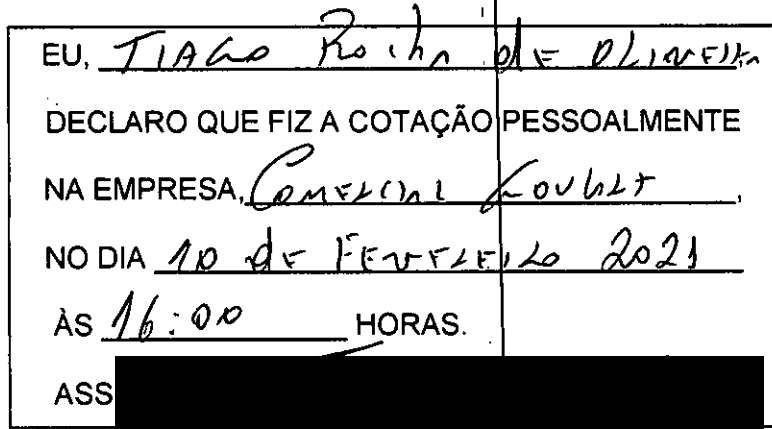 EU, TIAGO Rocha de OLIVEIRA
DECLARO QUE FIZ A COTAÇÃO PESSOALMENTE
NA EMPRESA, COMERCIAL ,
NO DIA 10 de FEVEREIRO 2021
ÀS 16:00 HORAS.
ASS